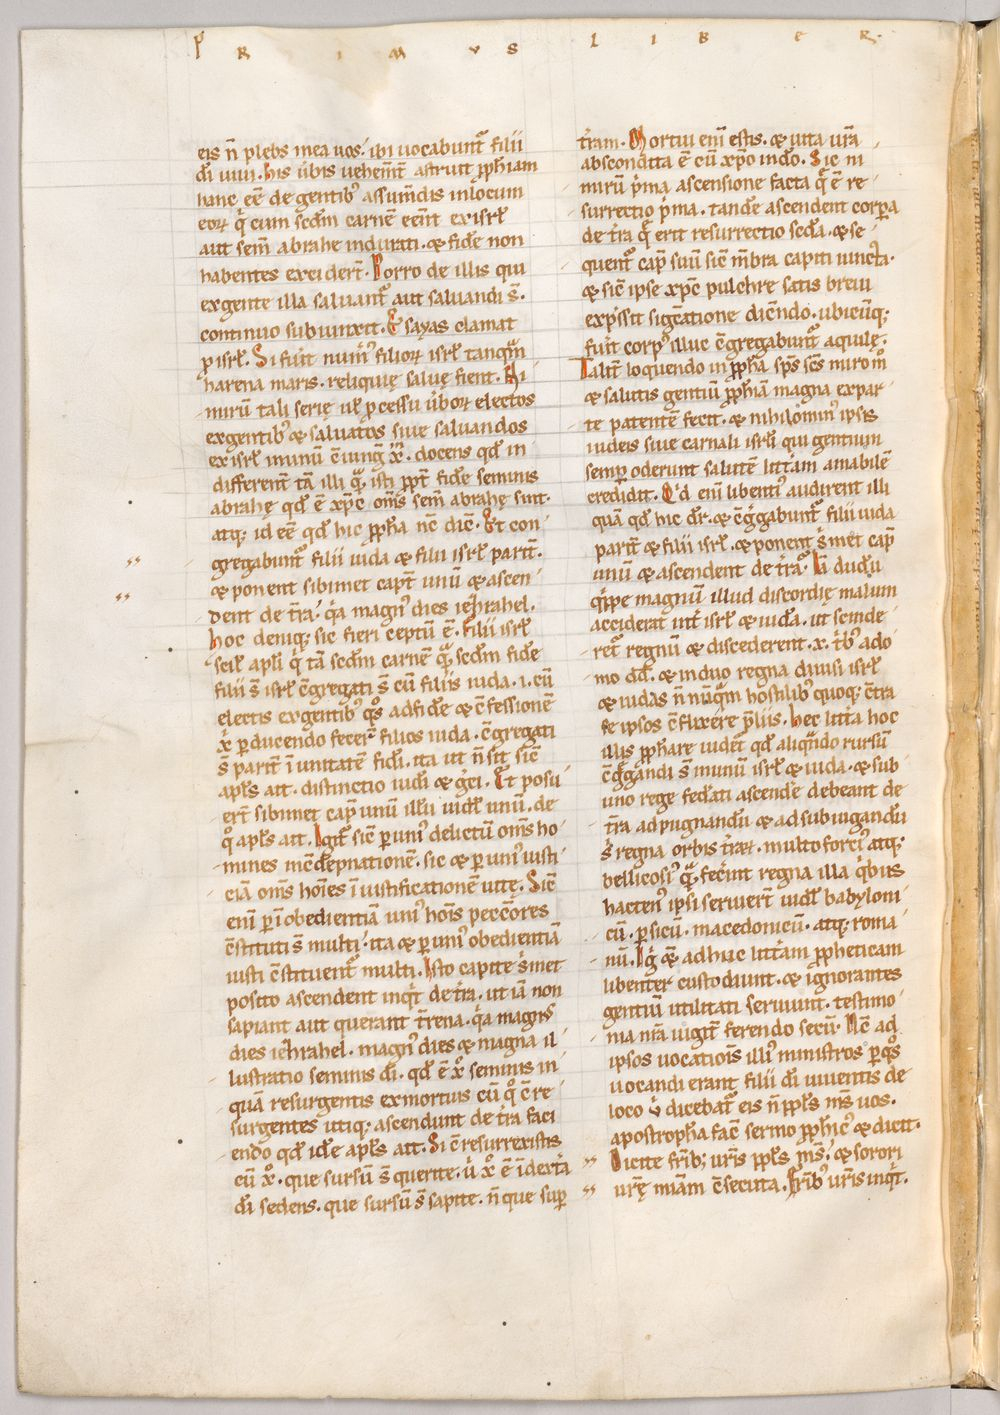 P R I M V S L I B E R
eis n̄ plebs mea uos. ibi uocabunt᷑ filii
di uiui. His ūbis uehem̄t̄ astruit ꝓph̄iam
hanc eē de gentibꝰ assum̄dis in locum
eoꝝ q̇ cum scd̄m carnē eēnt ex isrl̄
aut sem̄ abrahe indurati. & fide non
habentes excidert̄. Porro de illis qui
ex gente illa saluant᷑ aut saluandi s̄.
continuo subiunxit. Esayas clamat
ꝓ isrl̄. Si fuīt num̄ꝰ filioꝝ isrl̄ tanqm̄
harena maris. reliquię saluę fient. Ni
mirū tali serie ul̄ ꝓcessu ūboꝝ electos
ex gentibꝰ & saluatos siue saluandos
ex isrl̄ in unū c̄iungit xp̄c. docens qd̄ in
different̄ tā illi qm̄ isti ꝓpt̄ fide seminis
abrahę qd̄ ē xp̄c om̄s sem̄ abrahę sint.
atq; id eē qd̄ hic ꝓph̄a nc̄ dic̄. Et con
gregabunt᷑ filii iuda & filii isrl̄ parit̄.
& ponent sibimet capt̄ unū & ascen
dent de t̄ra. q̇a magnꝰ dies iezrahel.
Hoc deniq; sic fieri ceptū ē. Filii isrl̄
scil̄ apl̄i q̇ tā scd̄m carnē qm̄ scd̄m fide
filii s̄ isrl̄ c̄gregati s̄ cū filiis iuda. i. cū
electis ex gentibꝰ qo̊s ad fidē & c̄fessionē
xp̄i ꝑducendo fecer̄ filios iuda. c̄gregati
s̄ parit̄ ī unitatē fidi. ita ut n̄ sit sic̄
apl̄s ait. distinctio iudi & g̊ci. Et posu
ert̄ sibimet cap̄ unū illū uidl̄ unū. de
qo̊ apl̄s ait. Igit᷑ sic̄ ꝑ uniꝰ delictū om̄s ho
mines in c̄dēpnationē. sic & ꝑ uniꝰ iusti
ciā om̄s hoīes ī iustificationē uitę. Sic̄
enī ꝑ ī obedientiā uniꝰ hoīs pecc̄ores
c̄stituti s̄ multi. ita & ꝑ uniꝰ obedientiā
iusti c̄stituent᷑ multi. Isto capite s̊met
posito ascendent inqt̊ de t̄ra. ut iā non
sapiant aut querant t̄rena. q̇a magnꝰ
dies iezrahel. magnꝰ dies & magna il
lustratio seminis di. qd̄ ē xo̊ seminis in
quā resurgentis ex mortuis cū qo̊ c̄re
surgentes utiq; ascendunt de t̄ra faci
endo qd̄ idē apl̄s ait. Si c̄resurrexistis
cū xo̊. que sursū s̄ querite. ů xo̊ ē ī dextā
di sedens. que sursū s̄ sapite. n̄ que suꝑ
t̄ram. Mortui enī estis. & uita ur̄a
abscondita ē cū xp̄o in do. Sic ni
mirū p̊ma ascensione facta q̄ ē re
surrectio p̊ma. tandē ascendent corꝑa
de t̄ra q̄ erit resurrectio scd̄a. & se
quent᷑ cap̄ suū sic̄ m̄bra capiti iuncta.
& sic̄ ipse xp̄c pulchre satis breui
exp̊ssit sigc̄atione dicēndo. ubicūq;
fuīt corpꝰ illuc c̄gregabunt᷑ aquilę.
Talit̄ loquendo in ꝓph̄a sp̄s sc̄s miro mo̊
& salutis gentiū ꝓph̄iā magna ex par
te patentē fecit. & nihilo minꝰ ipsis
iudeis siue carnali isrl̄i qui gentium
semꝑ oderunt salutē litt̄am amabilē
credidit. Qd enī libentiꝰ audirent illi
quā qd̄ hic dr̄. & c̄gg̊abunt᷑ filii iuda
parit̄ & filii isrl̄. & ponent s̊met cap̄
unū & ascendent de t̄ra. Iā dudū
qi̊ppe magnū illud discordię malum
acciderat int̄ isrl̄ & iudā. ut scinde
ret᷑ regnū & discederent. x. t̊bꝰ a do
mo dd̄. & in duo regna diuisi isrl̄
& iudas n̄ nūqm̄ hostilibꝰ quoq; c̄tra
se ipsos c̄flixere p̄liis. Hec litt̄a hoc
illis ꝓph̄are uidet᷑ qd̄ aliqn̄do rursū
c̄gg̊andi s̄ in unū isrl̄ & iuda. & sub
uno rege fed̄ati ascendē debeant de
t̄ra ad pugnandū & ad subiugandū
s̊ regna orbis t̄raꝝ. multo forciꝰ atq;
bellicosiꝰ qm̄ fec̄int regna illa q̇bus
hactenꝰ ipsi seruiert̄ uidl̄ babyloni
cū. ꝑsicū. macedonicū. atq; roma
nū. Ig̊ & adhuc litt̄am ꝓpheticam
libenter custodiunt. & ignorantes
gentiū utilitati seruiunt. testimo
nia nr̄a iugit̄ ferendo secū. Nc̄ ad
ipsos uocatiois illiꝰ ministros ꝑ qo̊s
uocandi erant filii di uiuentis de
loco ů dicebat᷑ eis n̄ ppl̄s ms̄ uos.
apostropha fac̄ sermo ꝓphicꝰ & dicit.
Dicite fr̄ib; ur̄is ppl̄s ms̄. & sorori
ur̄ę mīam c̄secuta. Fr̄ibꝰ ur̄is inqt̊.